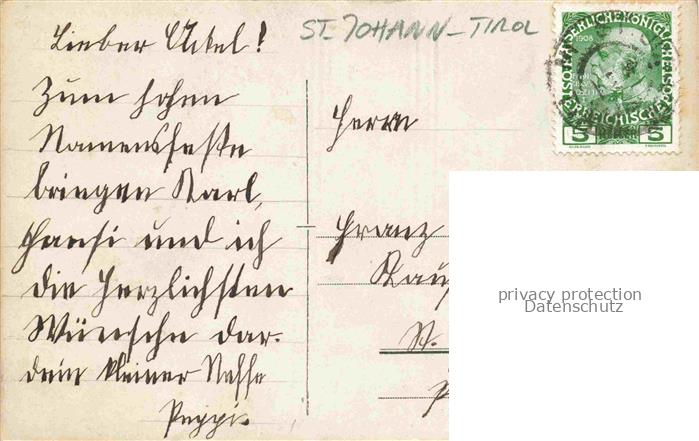 Lieber Onkel!
Zum hohen
Namensfeste
bringen Karl,
Hansi und ich
die herzlichsten
Wünsche dar.
dein kleiner Neffe
Peppi.
ST. JOHANN - TIROL
KAISERLICHEKÖNIGLICHE ÖSTERREICHISCHE POST
1908
5 HELLER 5
Herrn
Franz
St.
privacy protection
Datenschutz